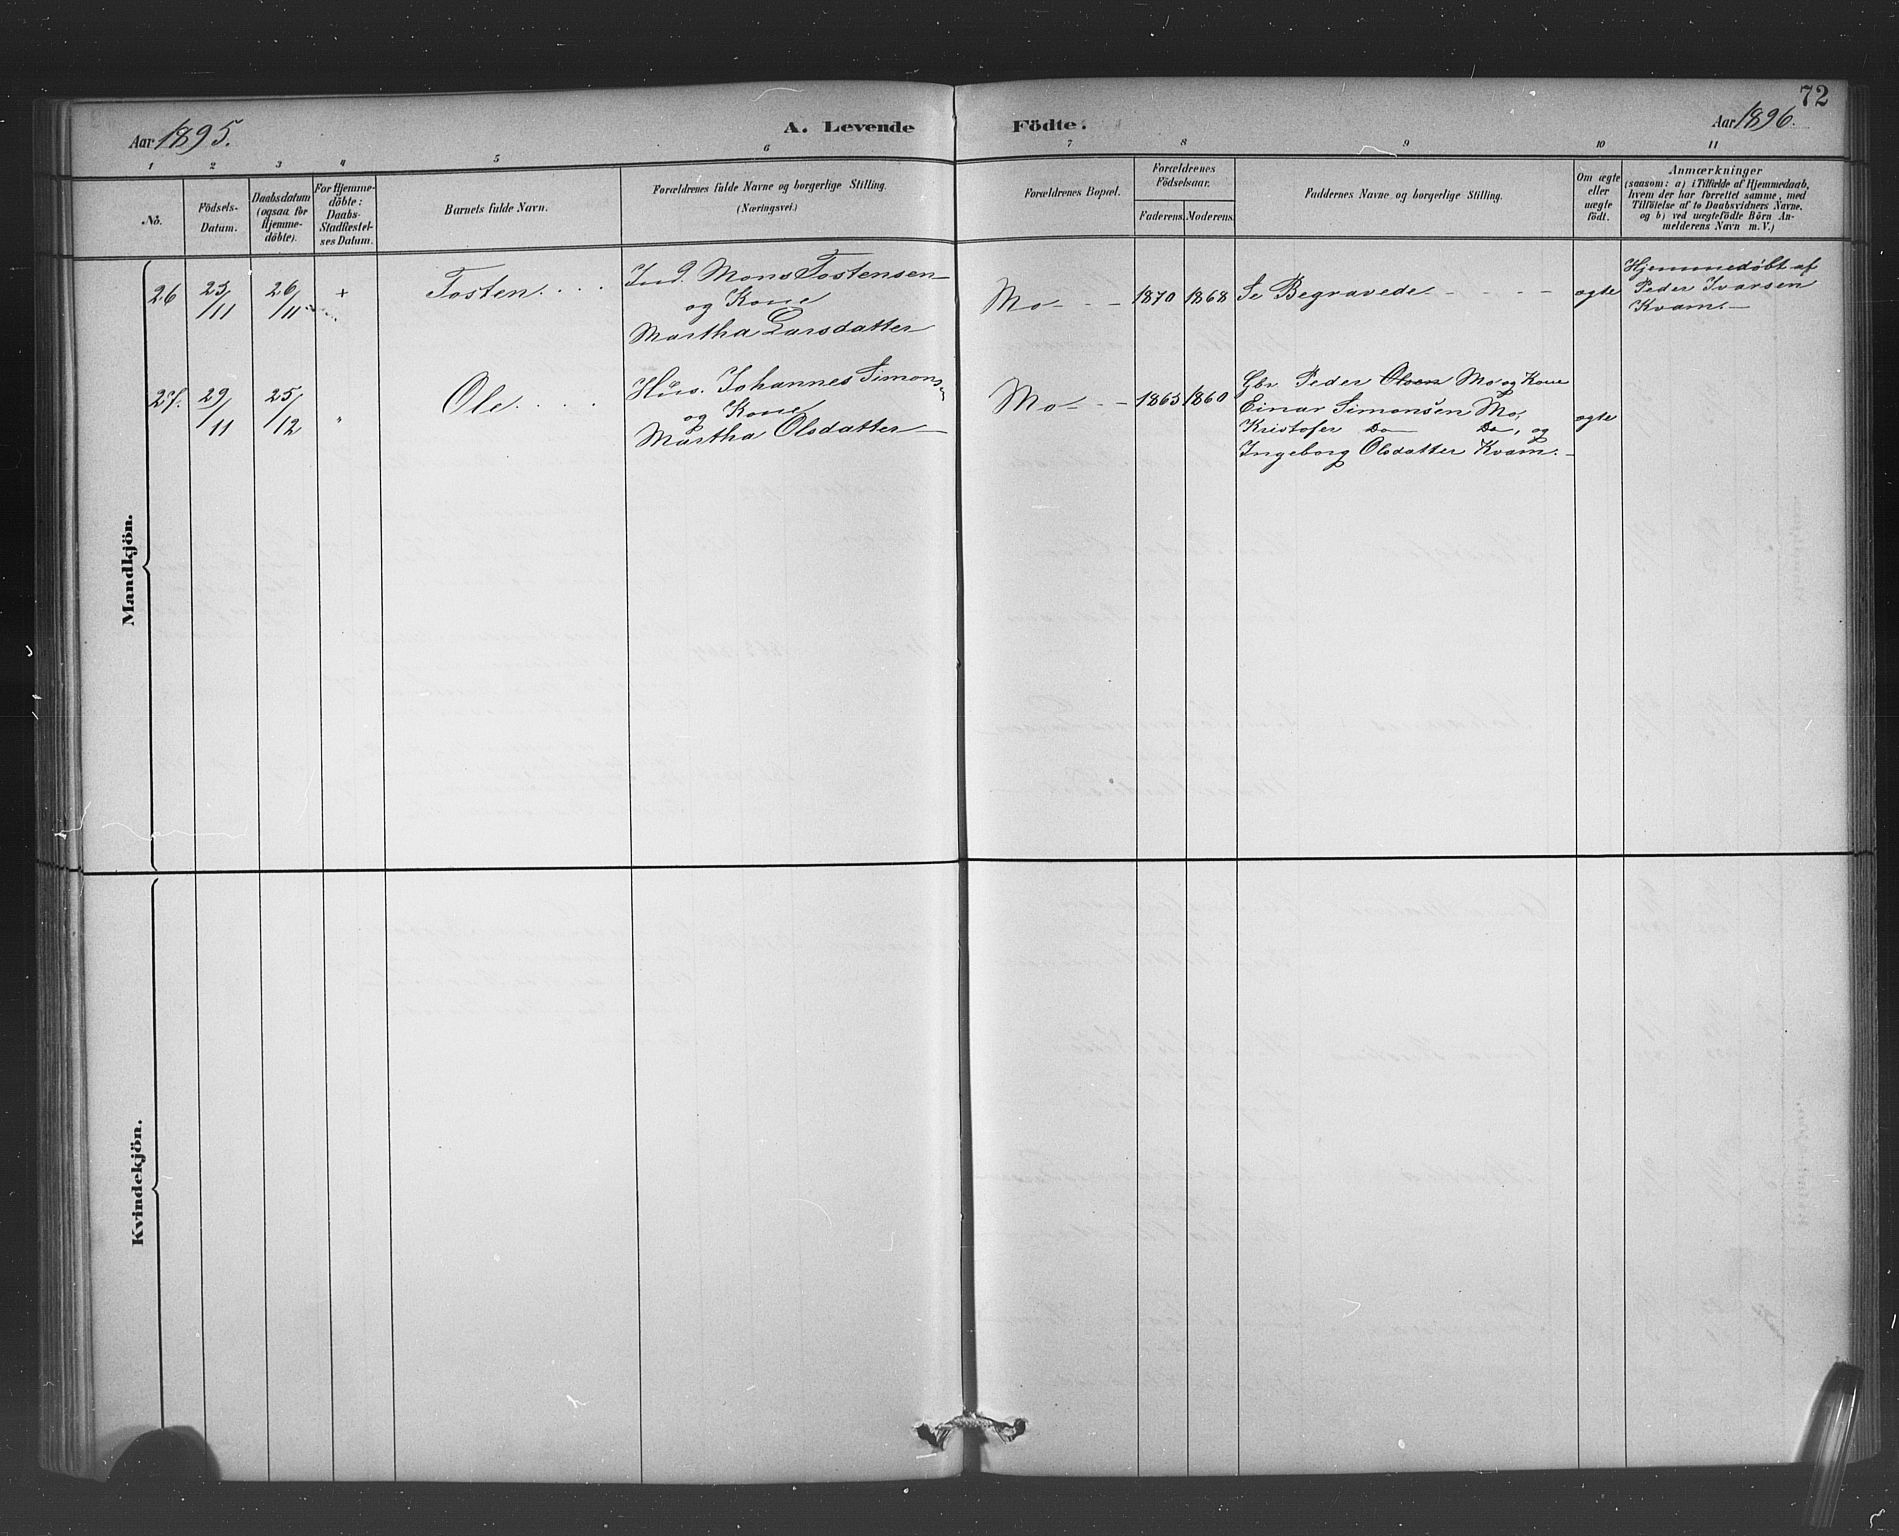 72
Aar 1895.
A. Levende Födte.
Aar 1896.
1 2 3 4 5 6 7 8 9 10 11
No.
Födsels-
Datum.
Daabsdatum
(ogsaa for
Hjemme-
döbte).
For Hjemme-
döbte:
Daabs-
Stadfæstel-
ses Datum.
Barnets fulde Navn.
Forældrenes fulde Navne og borgerlige Stilling.
(Næringsvei.)
Forældrenes Bopæl.
Forældrenes
Födselsaar.
Faderens. Moderens.
Faddernes Navne og borgerlige Stilling.
Om ægte
eller
uægte
födt.
Anmærkninger
(saasom: a) i Tilfælde af Hjemmedaab,
hvem der har forrettet samme, med
Tilföielse af to Daabsvidners Navne,
og b) ved uægtefödte Börn An-
melderens Navn m. V.)
Mandkjön.
26 23/11 26/11 + Tosten. . . . Ind. Mons Tostensen
og Kone
Martha Larsdatter
Mo - - 1870 1868 Se Begravede - - - - - ægte
Hjemmedøbt af
Peder Ivarsen
Kvam. -
27. 29/11 25/12 " Ole. . . . . Hus. Johannes Simons.
og Kone
Martha Olsdatter
Mo - - - 1865 1860
Gbr Peder Olsen Mo og Kone
Einar Simonsen Mo,
Kristofer Do Do, og
Ingeborg Olsdatter Kvam. -
ægte
Kvindekjön.